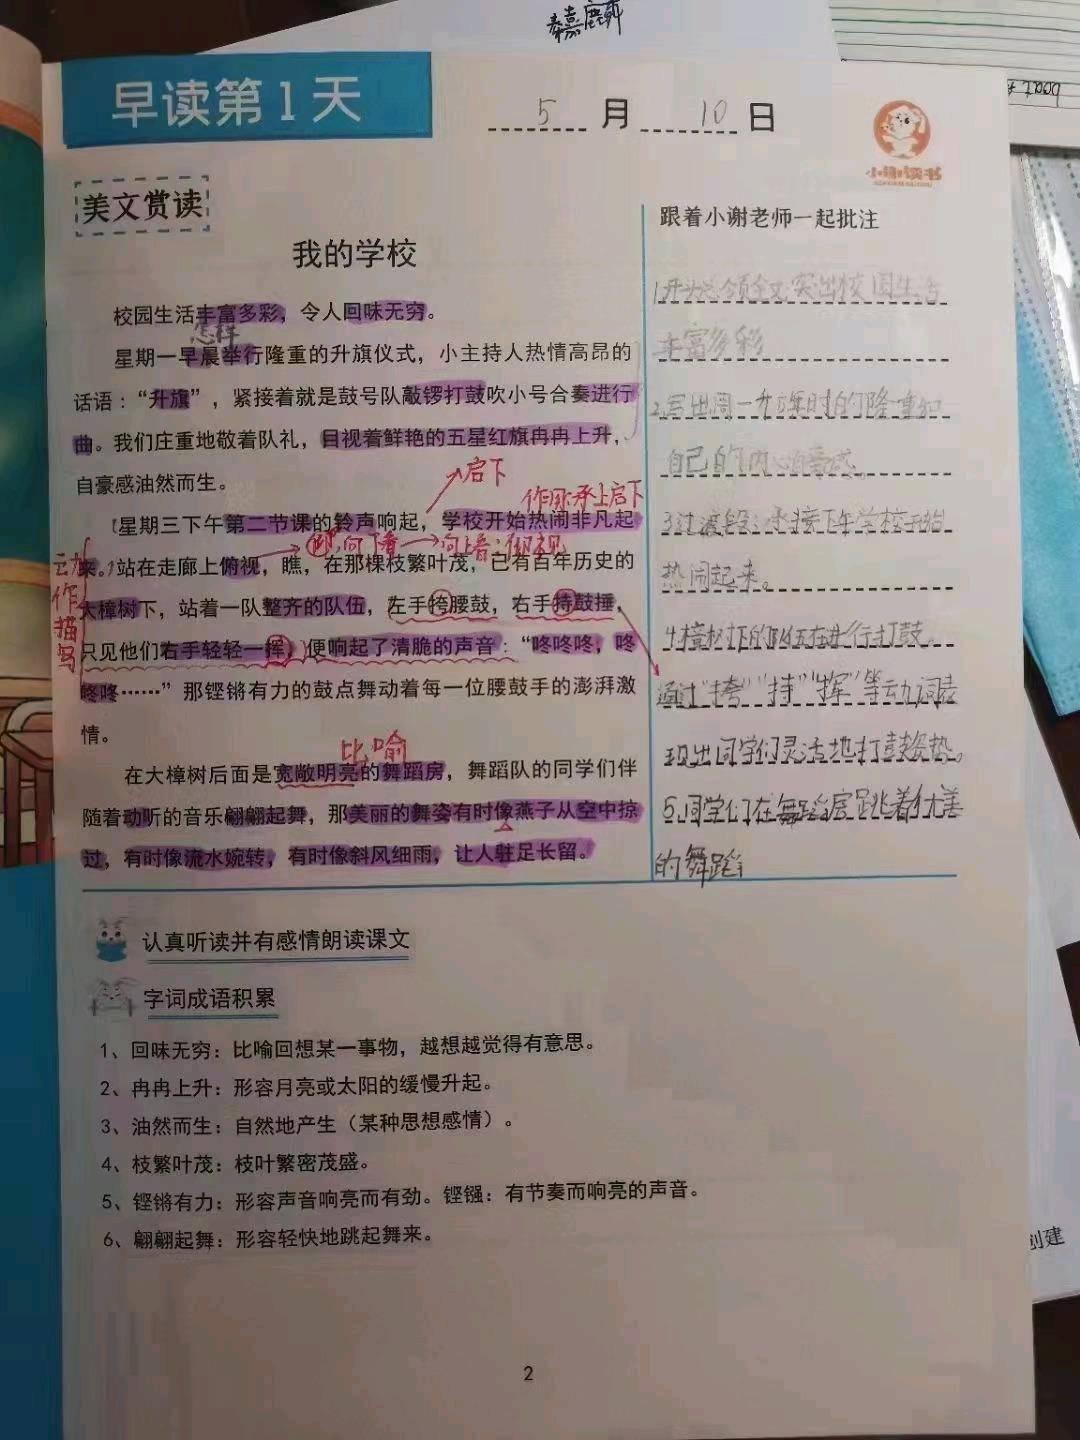 早读第1天
5月10日
小谢读书
美文赏读
我的学校
校园生活丰富多彩，令人回味无穷。
怎样
星期一早晨举行隆重的升旗仪式，小主持人热情高昂的
话语：“升旗”，紧接着就是鼓号队敲锣打鼓吹小号合奏进行
曲。我们庄重地敬着队礼，目视着鲜艳的五星红旗冉冉上升，
自豪感油然而生。
启下
作用:承上启下
星期三下午第二节课的铃声响起，学校开始热闹非凡起
向下看 向上看：仰视
来。站在走廊上俯视，瞧，在那棵枝繁叶茂，已有百年历史的
大樟树下，站着一队整齐的队伍，左手挎腰鼓，右手持鼓捶，
只见他们右手轻轻一挥，便响起了清脆的声音：“咚咚咚；咚
咚咚……”那铿锵有力的鼓点舞动着每一位腰鼓手的澎湃激
情。
动作描写
比喻
在大樟树后面是宽敞明亮的舞蹈房，舞蹈队的同学们伴
随着动听的音乐翩翩起舞，那美丽的舞姿有时像燕子从空中掠
过，有时像流水婉转，有时像斜风细雨，让人驻足长留。
跟着小谢老师一起批注
1.开头总领全文,突出校园生活
丰富多彩
2.写出周一升旗时的隆重和
自己的内心自豪感。
3.过渡段：承接下午学校开始
热闹起来。
4.樟树下的队伍在进行打鼓。
通过“挎”“持”“挥”等动词表
现出同学们灵活地打鼓姿势。
5.同学们在舞蹈房跳着优美
的舞蹈
认真听读并有感情朗读课文
字词成语积累
1、回味无穷：比喻回想某一事物，越想越觉得有意思。
2、冉冉上升：形容月亮或太阳的缓慢升起。
3、油然而生：自然地产生（某种思想感情）。
4、枝繁叶茂：枝叶繁密茂盛。
5、铿锵有力：形容声音响亮而有劲。铿镪：有节奏而响亮的声音。
6、翩翩起舞：形容轻快地跳起舞来。
创建
2